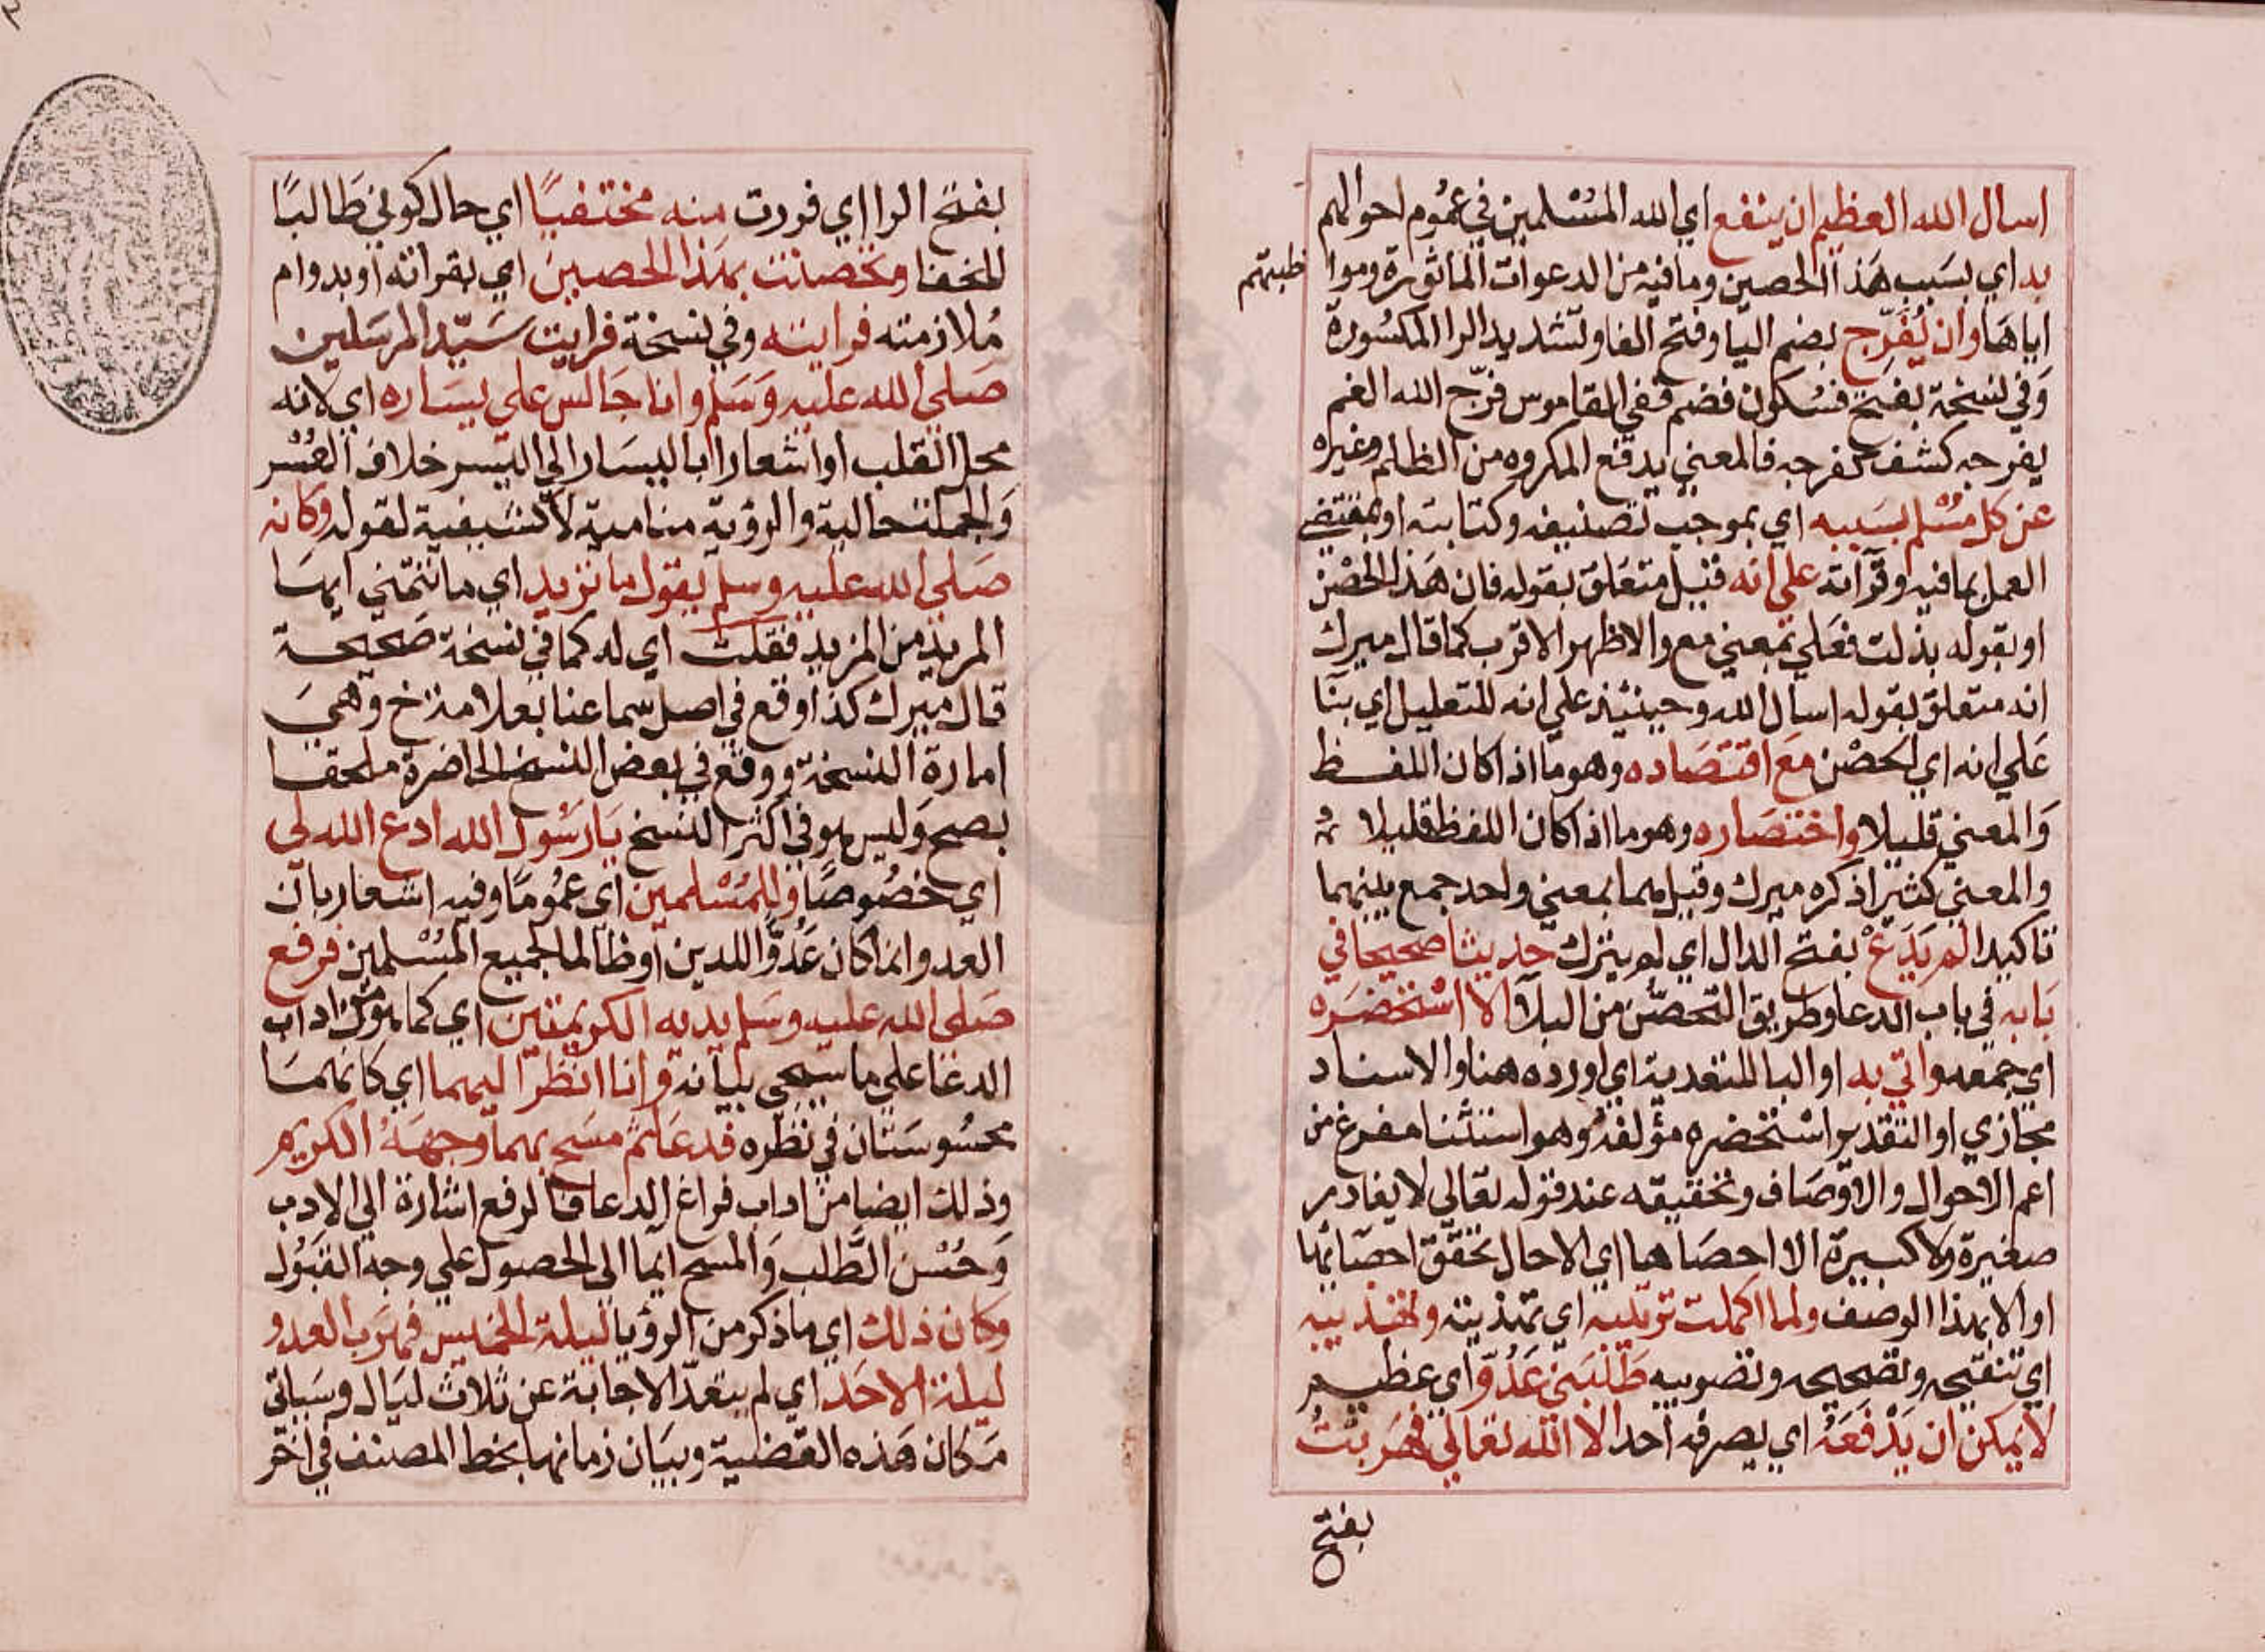 اسال الله العظيم ان ينفع اي الله المسْلمين في عمُوم احوالهم
به اي بسَبب هَذا الحصين وما فيه من الدعوات الماثورة وموا
ظبتهم
اياهَا وان يُفَرِّج بضم اليا وفتح الفا وتشديد الرا المكسُورة
وَفي نسخة بفتح فسُكون فضم ففي القاموس فرّج الله الغم
يفرجه كشف كفرجه فالمعني يدفع المكروه من الظالم وغيره
عن كل مسْلم بسَببه اي بموجب تصنيفه وكتابته او بمقتضي
العمل بما فيه وقرآته علي انه قيل متعَلق بقوله فان هَذا الحصْن
او بقوله بذلت فعَلي بمعني مع والاظهر الاقرب كما قال ميرك
انه متعلق بقوله اسال الله وحينئذ علي انه للتعليل اي بنآ
عَلي انه اي الحصْن مَع اقتصَاده وهو ما اذا كان اللفظ
وَالمعني قليلا واختصَاره وهو ما اذا كان اللفظ قليلا
والمعني كثيرا ذكره ميرك وقيل هما بمعني واحد جمع بينهما
تاكيدا لم يَدَعْ بفتح الدال اي لم يترك حديثا صحيحا في
بَابه في باب الدعا وطريق التحصّن من البلآ الا استحضَره
اي جمعه واتي به او البا للتعدية اي اورده هنا والاسناد
مجازي او التقدير اسْتحضره مؤلفهُ وهو استثنا مفرغ من
اعم الاحوال والاوصَاف وتحقيقه عند قوله تعَالي لا يغادر
صغيرة ولا كبيرة الا احصَاها اي الا حال تحقق احصَائها
او الا بهذا الوصف ولما اكملت ترتيبه اي تهذيبه
اي تنقيحه وتصحيحه وتصويبه طَلَبَني عَدُوّ اي عظيم
لا يمكن ان يَدْفَعَهُ اي يصرفه احد الا الله تعَالي فهَربتُ
بفتح
بفتح الرا اي فررت منه مختفيًا اي حال كوني طَالبًا
للخفا وتحصنت بهَذا الحصين اي بقرائه او بدوام
مُلازمته فرايته وفي نسخة فرايت سَيّد المرسَلين
صَلي الله عليه وَسَلم وانا جَالس علي يسَاره اي لانه
محل القلب او اشعارا باليسَار الي اليسر خلاف العُسْر
وَالجملة حالية والرؤية منامية لا كشفية لقوله وكانه
صَلي الله عليه وسلم يقول ما تريد اي ما تتمني ايهَا
المريد من المزيد فقلت اي له كما في نسخة صَحيحة
قال ميرك كذا وقع في اصل سماعنا بعلامة خ وهيَ
امارة النسخة ووقع في بعض النسخ الحاضرة ملحقا
بصح وَليس هو في اكثر النسخ يَارسُول الله ادع الله لي
اي خصُوصًا وللمسْلمين اي عمُومًا وفيه اشعار بان
العدو انما كان عَدُوًّا للدين او ظالما لجميع المسْلمين فرفع
صَلي الله عليه وسَلم يديه الكريمتين اي كما هو من اداب
الدعَا علي ما سيجي بيَانه وانا انظر اليهما اي كانهمَا
محسُوسَتان في نظره فدعَا ثم مسَح بهما وجهَهُ الكريم
وذلك ايضا من اداب فراغ الدعا فالرفع اشارة الي الادب
وَحُسْن الطَّلب وَالمسح ايما الي الحصول علي وجه القبُول
وكان ذلك اي ما ذكر من الرؤيا ليلة الخميس فهَرب العدو
ليلة الاحَد اي لم يتعدّ الاجابة عن ثلاث ليَال وسَياتي
مَكان هَذه القضية وبيَان زمانها بخط المصنف في اخر